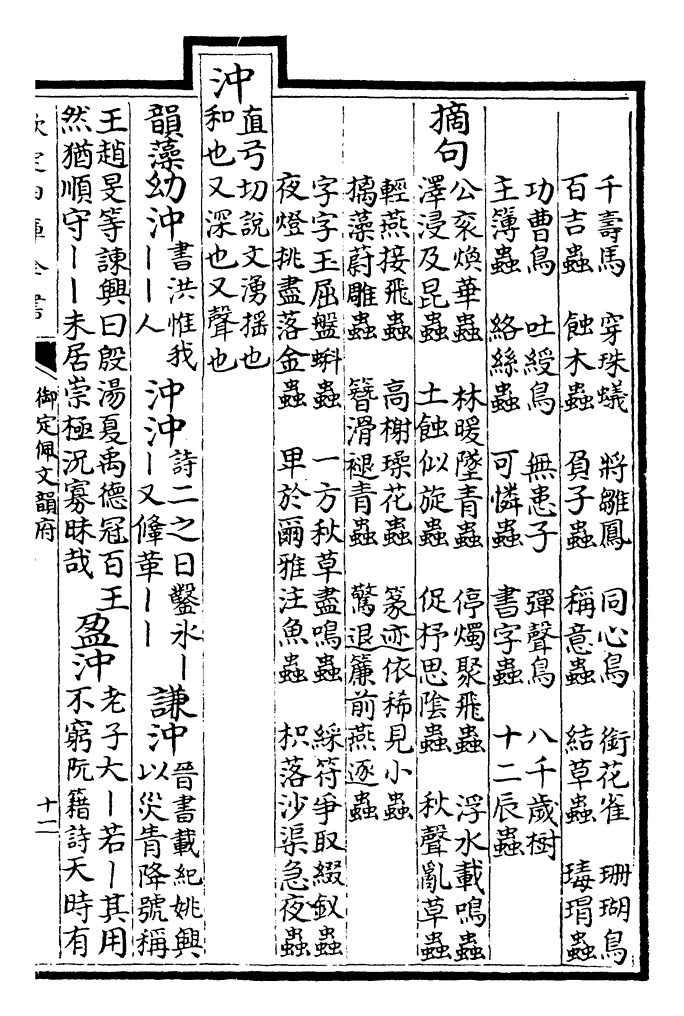 千壽馬 穿珠蟻 將雛鳳 同心鳥 銜花雀 珊瑚鳥
百吉蟲 蝕木蟲 負子蟲 稱意蟲 結草蟲 瑇瑁蟲
功曹鳥 吐綬鳥 無患子 彈聲鳥 八千歲樹
主簿蟲 絡絲蟲 可憐蟲 書字蟲 十二辰蟲
摘句
公衮煥華蟲 林暖墜青蟲 停燭聚飛蟲 浮水載鳴蟲
澤浸及昆蟲 土蝕似旋蟲 促杼思陰蟲 秋聲亂草蟲
輕燕接飛蟲 高榭璪花蟲 篆迹依稀見小蟲
摛藻蔚雕蟲 簪滑褪青蟲 驚退簾前燕逐蟲
字字王屈盤蝌蟲 一方秋草盡鳴蟲 綵符爭取綴釵蟲
夜燈挑盡落金蟲 畢於爾雅注魚蟲 枳落沙渠急夜蟲
沖
直弓切說文湧揺也
和也又深也又聲也
韻藻幼沖
書洪惟我
丨丨人
沖沖
詩二之日鑿氷丨
丨又鞗革丨丨
謙沖
晉書載紀姚興
以災眚降號稱
王趙旻等諫興曰殷湯夏禹德冠百王
然猶順守丨丨未居崇極況寡昧哉
盈沖
老子大丨若丨其用
不窮阮籍詩天時有
欽定四庫全書
御定佩文韻府
十二